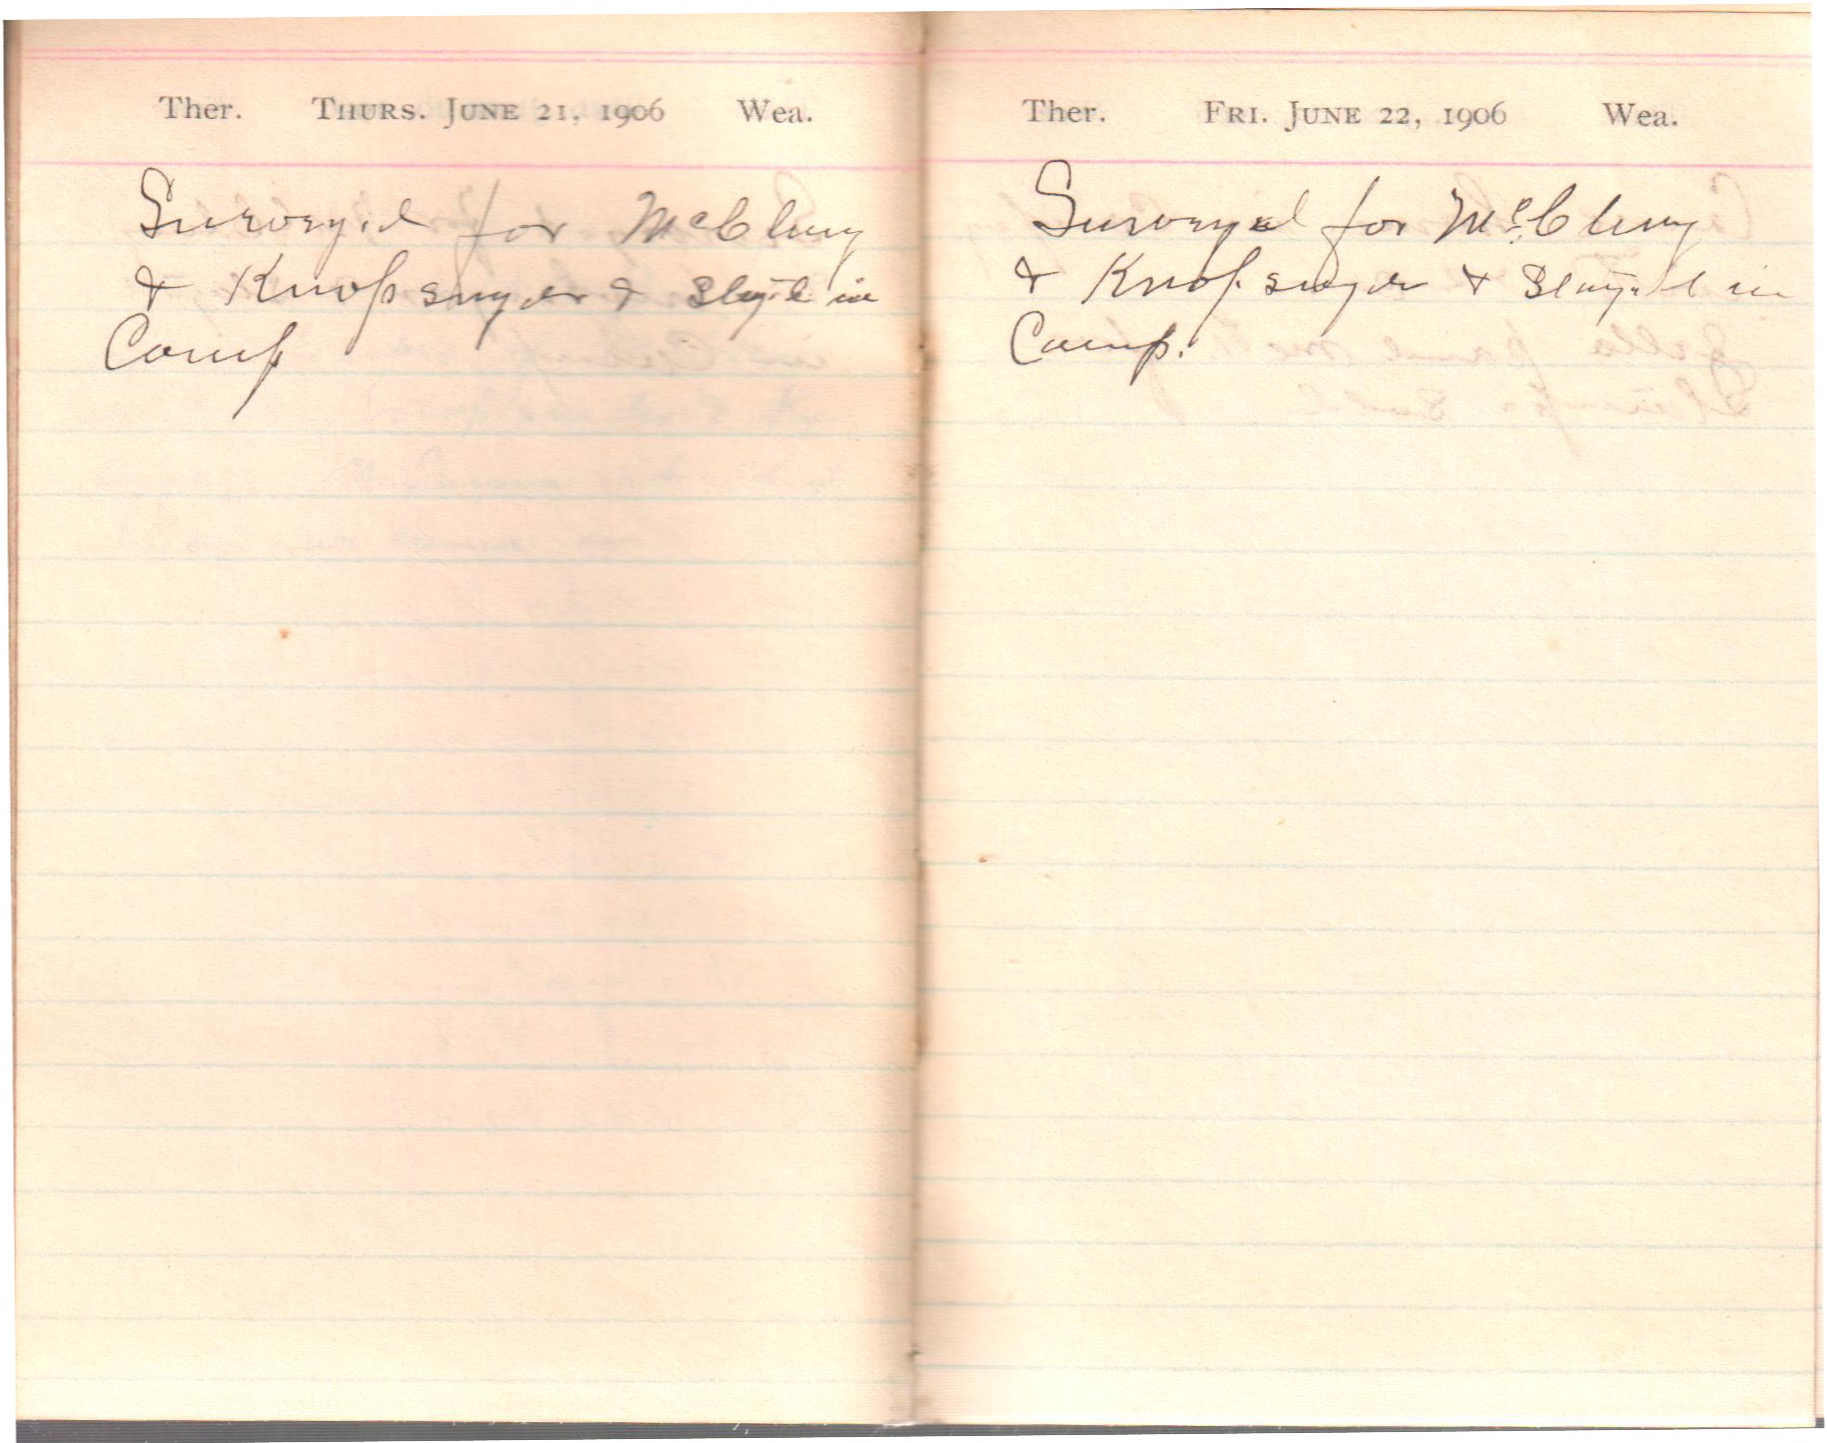 Ther. THURS. JUNE 21, 1906 Wea.
Surveyed for McClung
& Knopsnyder & Stayed in
Camp
Ther. FRI. JUNE 22, 1906 Wea.
Surveyed for McClung
& Knopsnyder & Stayed in
Camp.